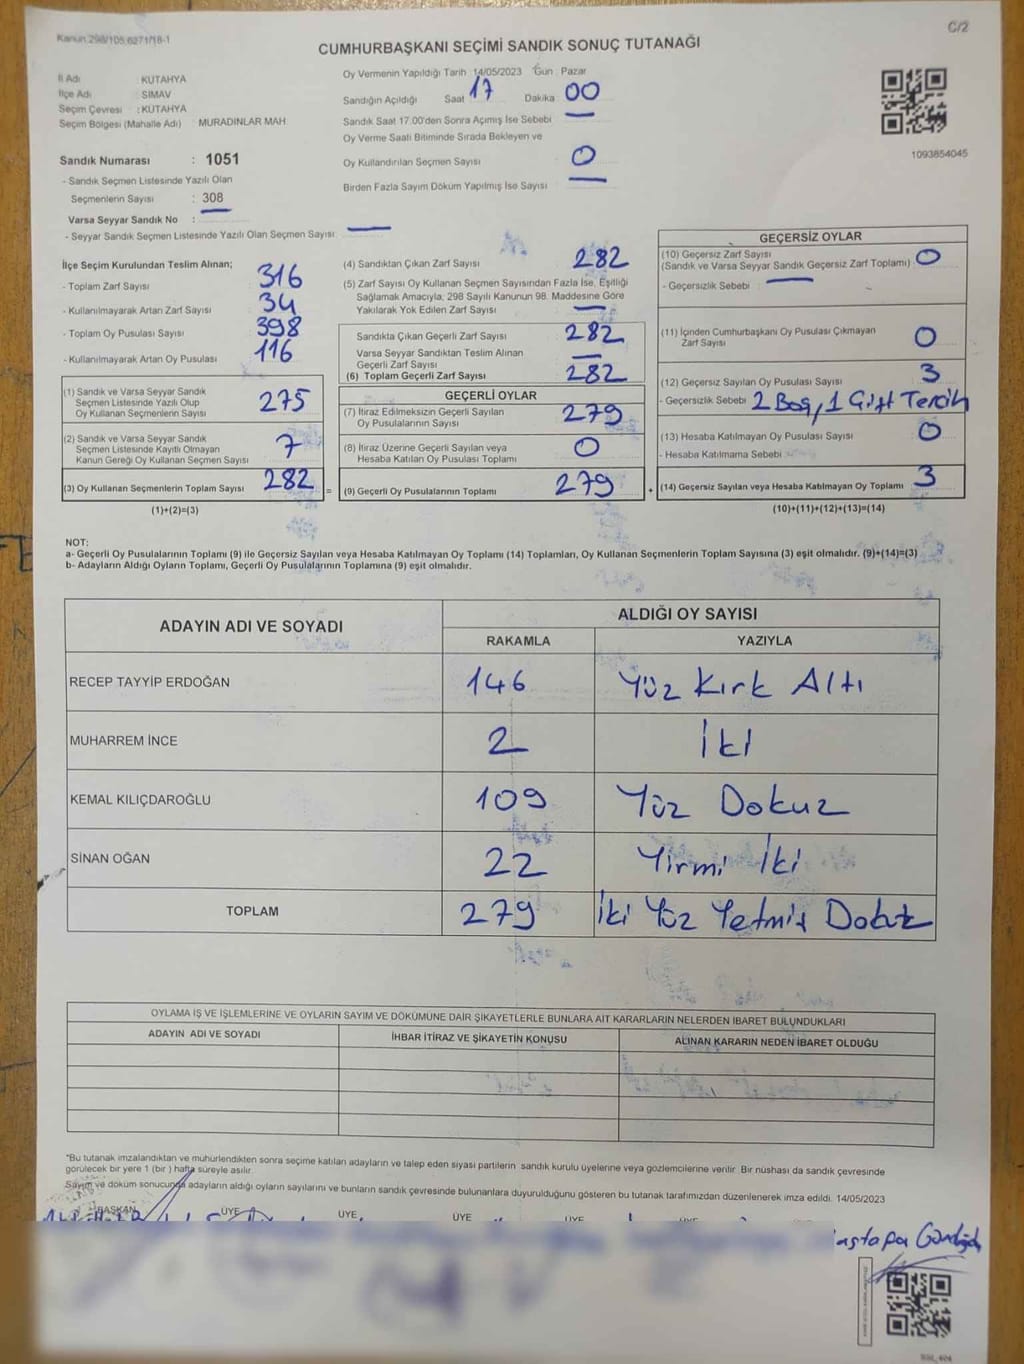 Kanun 298/105,6271/18-1
C/2
CUMHURBAŞKANI SEÇİMİ SANDIK SONUÇ TUTANAĞI
İl Adı : KÜTAHYA
İlçe Adı : SİMAV
Seçim Çevresi : KÜTAHYA
Seçim Bölgesi (Mahalle Adı) MURADINLAR MAH
Sandık Numarası : 1051
- Sandık Seçmen Listesinde Yazılı Olan
Seçmenlerin Sayısı : 308
Varsa Seyyar Sandık No :
- Seyyar Sandık Seçmen Listesinde Yazılı Olan Seçmen Sayısı:
Oy Vermenin Yapıldığı Tarih 14/05/2023 Gün : Pazar
Sandığın Açıldığı Saat 17 Dakika 00
Sandık Saat 17.00'den Sonra Açılmış İse Sebebi
Oy Verme Saati Bitiminde Sırada Bekleyen ve
Oy Kullandırılan Seçmen Sayısı 0
Birden Fazla Sayım Döküm Yapılmış İse Sayısı
1093854045
İlçe Seçim Kurulundan Teslim Alınan;
- Toplam Zarf Sayısı 316
- Kullanılmayarak Artan Zarf Sayısı 34
- Toplam Oy Pusulası Sayısı 398
- Kullanılmayarak Artan Oy Pusulası 116
(1) Sandık ve Varsa Seyyar Sandık
Seçmen Listesinde Yazılı Olup
Oy Kullanan Seçmenlerin Sayısı 275
(2) Sandık ve Varsa Seyyar Sandık
Seçmen Listesinde Kayıtlı Olmayan
Kanun Gereği Oy Kullanan Seçmen Sayısı 7
(3) Oy Kullanan Seçmenlerin Toplam Sayısı 282
(1)+(2)=(3)
(4) Sandıktan Çıkan Zarf Sayısı 282
(5) Zarf Sayısı Oy Kullanan Seçmen Sayısından Fazla İse, Eşitliği
Sağlamak Amacıyla, 298 Sayılı Kanunun 98. Maddesine Göre
Yakılarak Yok Edilen Zarf Sayısı
Sandıkta Çıkan Geçerli Zarf Sayısı 282
Varsa Seyyar Sandıktan Teslim Alınan
Geçerli Zarf Sayısı
(6) Toplam Geçerli Zarf Sayısı 282
GEÇERLİ OYLAR
(7) İtiraz Edilmeksizin Geçerli Sayılan
Oy Pusulalarının Sayısı 279
(8) İtiraz Üzerine Geçerli Sayılan veya
Hesaba Katılan Oy Pusulası Toplamı 0
= (9) Geçerli Oy Pusulalarının Toplamı 279
GEÇERSİZ OYLAR
(10) Geçersiz Zarf Sayısı
(Sandık ve Varsa Seyyar Sandık Geçersiz Zarf Toplamı) 0
- Geçersizlik Sebebi :
(11) İçinden Cumhurbaşkanı Oy Pusulası Çıkmayan
Zarf Sayısı 0
(12) Geçersiz Sayılan Oy Pusulası Sayısı 3
- Geçersizlik Sebebi 2 Boş, 1 Çift Tercih
(13) Hesaba Katılmayan Oy Pusulası Sayısı 0
- Hesaba Katılmama Sebebi
+ (14) Geçersiz Sayılan veya Hesaba Katılmayan Oy Toplamı 3
(10)+(11)+(12)+(13)=(14)
NOT:
a- Geçerli Oy Pusulalarının Toplamı (9) ile Geçersiz Sayılan veya Hesaba Katılmayan Oy Toplamı (14) Toplamları, Oy Kullanan Seçmenlerin Toplam Sayısına (3) eşit olmalıdır. (9)+(14)=(3)
b- Adayların Aldığı Oyların Toplamı, Geçerli Oy Pusulalarının Toplamına (9) eşit olmalıdır.
ADAYIN ADI VE SOYADI
ALDIĞI OY SAYISI
RAKAMLA YAZIYLA
RECEP TAYYİP ERDOĞAN 146 Yüz Kırk Altı
MUHARREM İNCE 2 İki
KEMAL KILIÇDAROĞLU 109 Yüz Dokuz
SİNAN OĞAN 22 Yirmi İki
TOPLAM 279 İki Yüz Yetmiş Dokuz
OYLAMA İŞ VE İŞLEMLERİNE VE OYLARIN SAYIM VE DÖKÜMÜNE DAİR ŞİKAYETLERLE BUNLARA AİT KARARLARIN NELERDEN İBARET BULUNDUKLARI
ADAYIN ADI VE SOYADI İHBAR İTİRAZ VE ŞİKAYETİN KONUSU ALINAN KARARIN NEDEN İBARET OLDUĞU
*Bu tutanak imzalandıktan ve mühürlendikten sonra seçime katılan adayların ve talep eden siyasi partilerin sandık kurulu üyelerine veya gözlemcilerine verilir. Bir nüshası da sandık çevresinde
görülecek bir yere 1 (bir ) hafta süreyle asılır.
Sayım ve döküm sonucunda adayların aldığı oyların sayılarını ve bunların sandık çevresinde bulunanlara duyurulduğunu gösteren bu tutanak tarafımızdan düzenlenerek imza edildi. 14/05/2023
BAŞKAN ÜYE ÜYE ÜYE ÜYE ÜYE